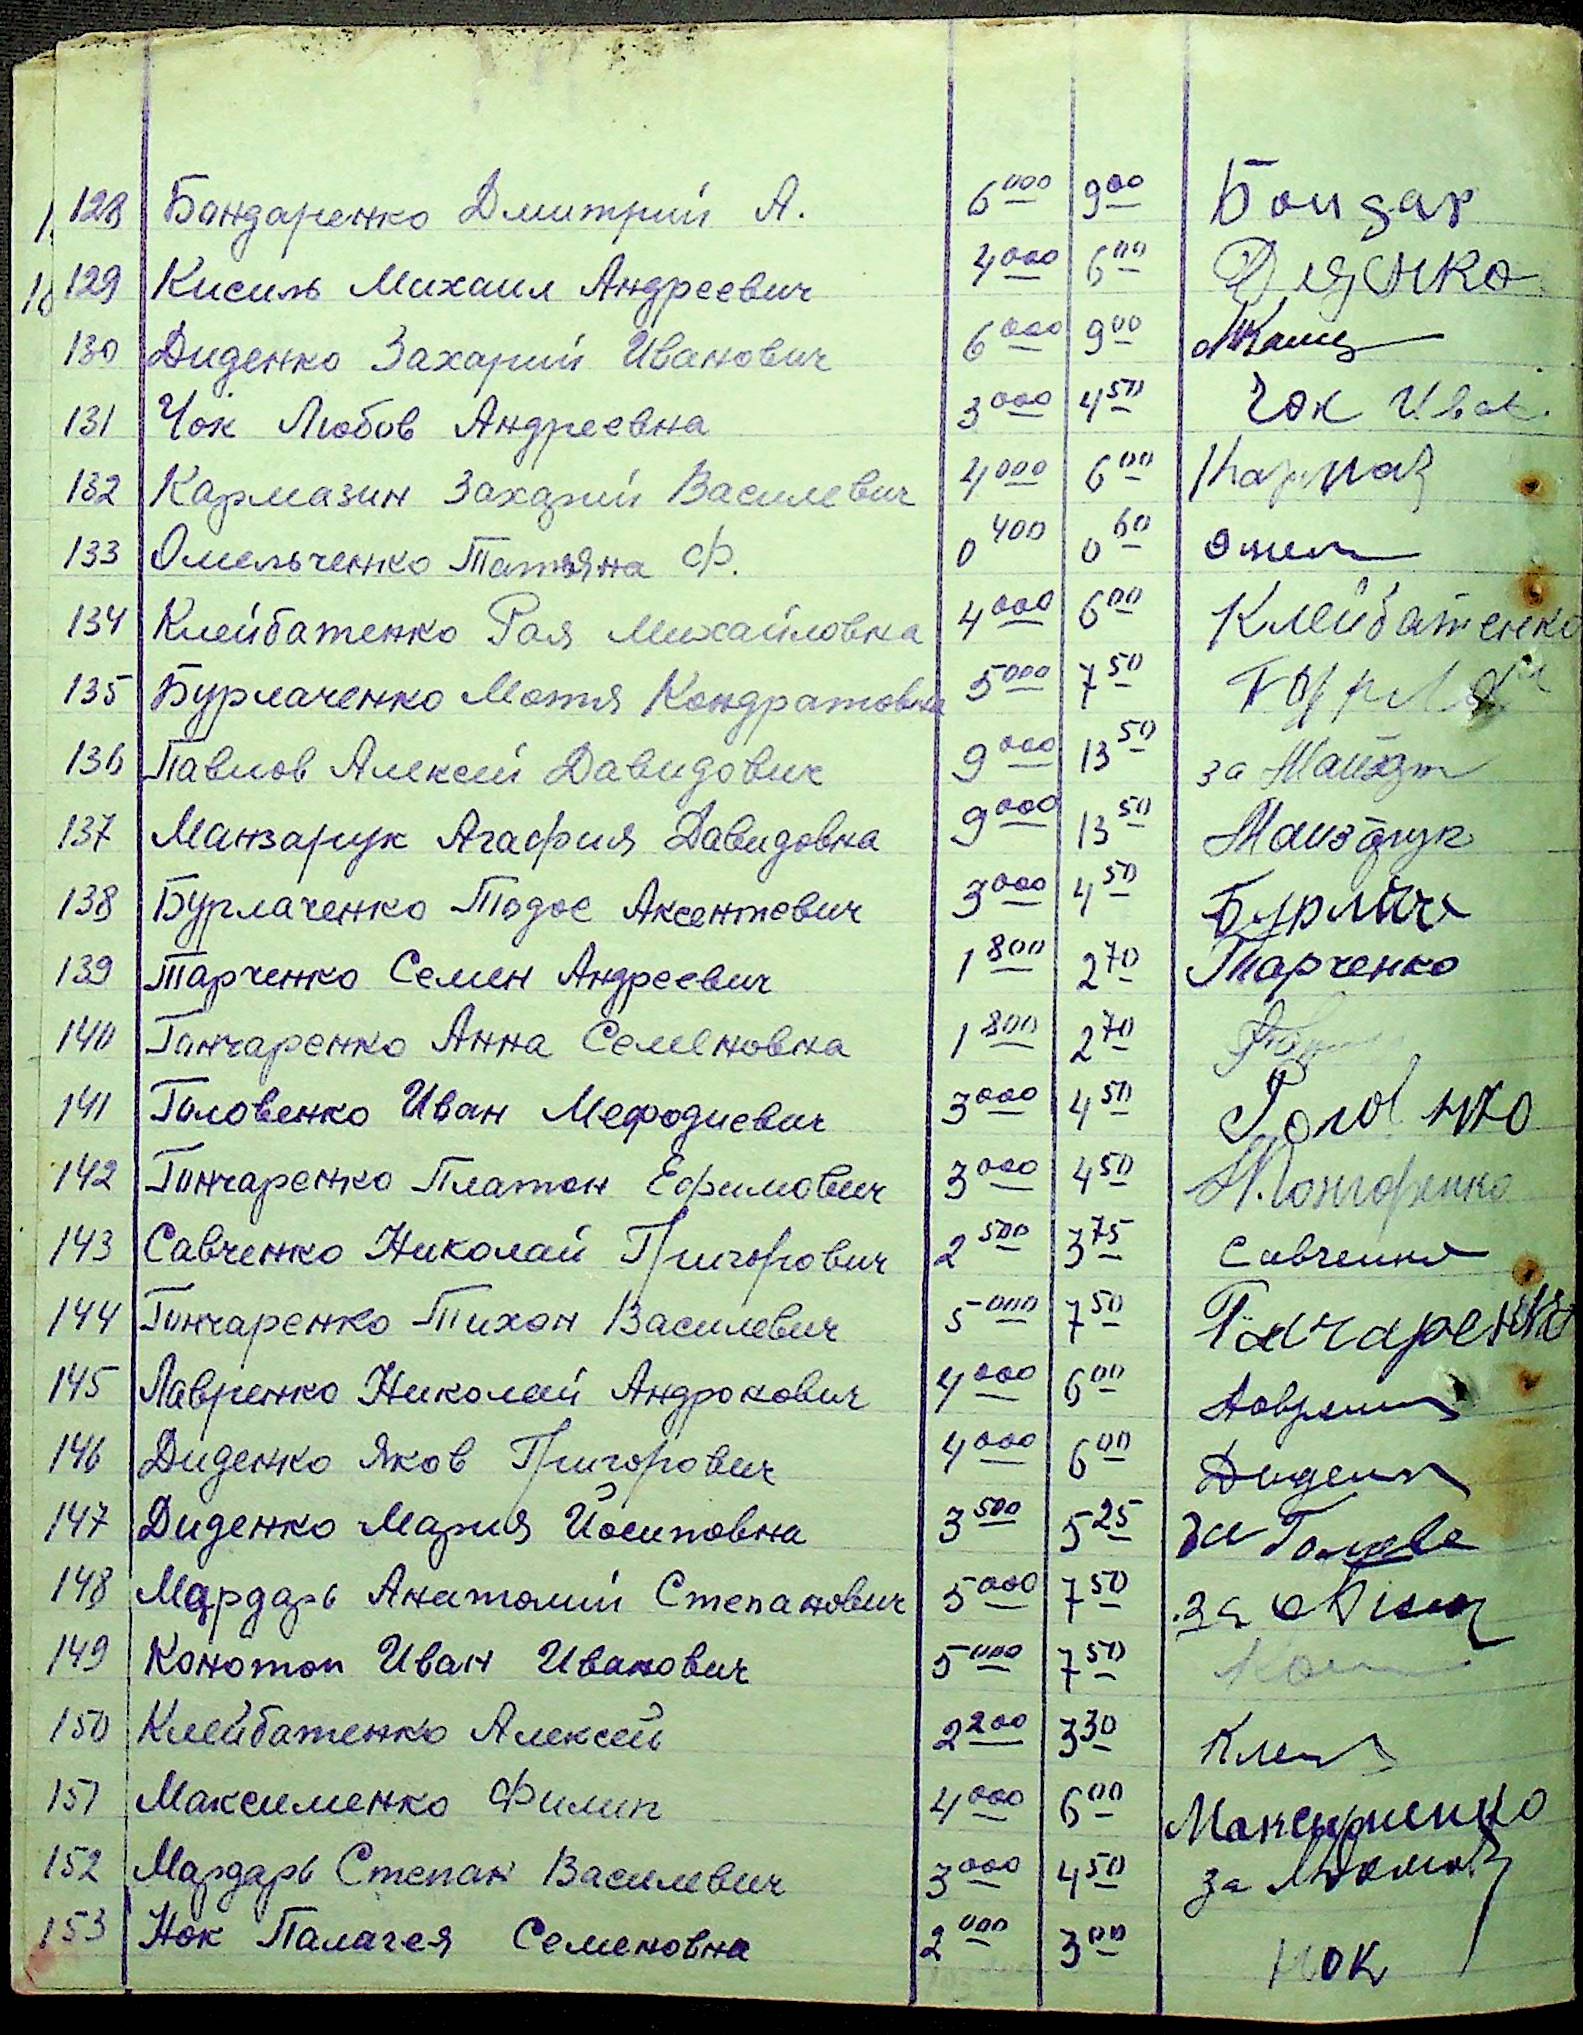 128 Бондаренко Дмитрий А. 6 000 9 00 Бондар
129 Кисиль Михаил Андреевич 4 000 6 00
130 Диденко Захарий Иванович 6 000 9 00
131 Чок Любов Андреевна 3 000 4 50 Чок
132 Кармазин Захарий Василевич 4 000 6 00 Кармаз
133 Омельченко Татьяна Ф. 0 400 0 60 Омел
134 Клейбатенко Рая Михайловна 4 000 6 00 Клейбатенко
135 Бурлаченко Мотя Кондратовна 5 000 7 50
136 Павлов Алексей Давидович 9 000 13 50 за
137 Манзарук Агафия Давидовна 9 000 13 50 Манзарук
138 Бурлаченко Тодос Аксентевич 3 000 4 50 Бурлач
139 Тарченко Семен Андреевич 1 800 2 70 Тарченко
140 Гончаренко Анна Семеновна 1 800 2 70
141 Головенко Иван Мефодиевич 3 000 4 50
142 Гончаренко Платон Ефимович 3 000 4 50
143 Савченко Николай Григорович 2 500 3 75 Савченко
144 Гончаренко Тихон Василевич 5 000 7 50 Ганчаренко
145 Лавренко Николай Андронович 4 000 6 00
146 Диденко Яков Григорович 4 000 6 00 Диден
147 Диденко Мария Йосиповна 3 500 5 25 за
148 Мардарь Анатолий Степанович 5 000 7 50 за
149 Конотоп Иван Иванович 5 000 7 50 Кон
150 Клейбатенко Алексей 2 200 3 30 Клей
151 Максименко Филип 4 000 6 00 Максименко
152 Мардарь Степан Василевич 3 000 4 50 за
153 Нок Палагея Семеновна 2 000 3 00 Нок